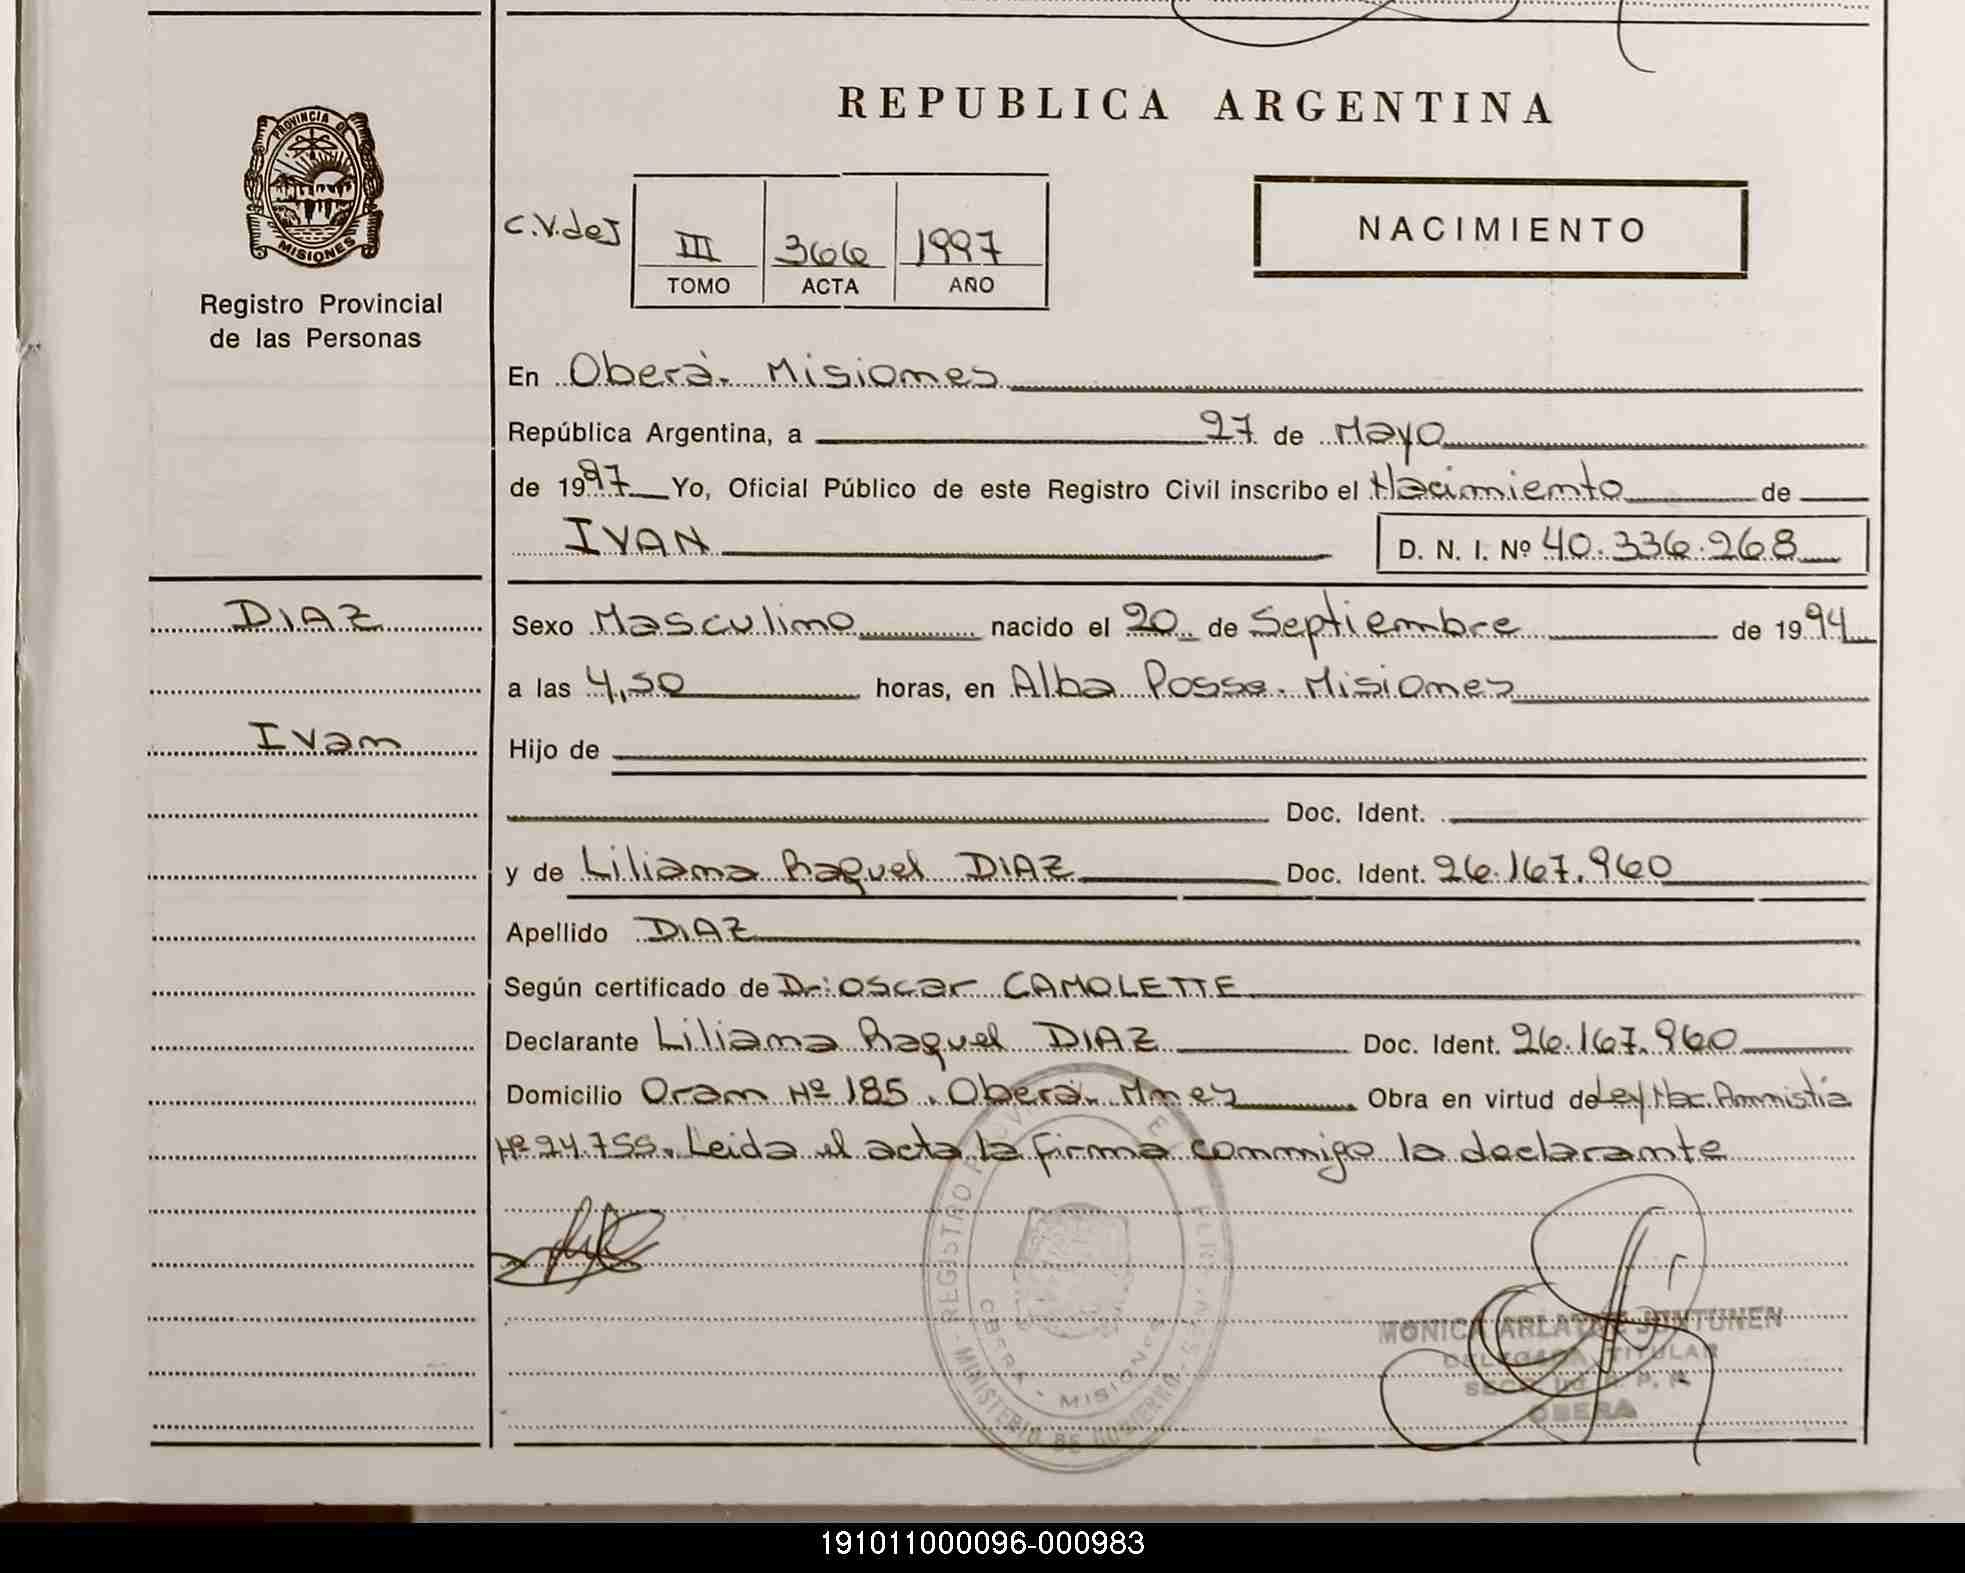 REPUBLICA ARGENTINA
PROVINCIA DE
MISIONES
Registro Provincial
de las Personas
NACIMIENTO
C.V.deJ
III 366 1997
TOMO ACTA AÑO
En Oberà. Misiones
República Argentina, a 27 de Mayo
de 1997 Yo, Oficial Público de este Registro Civil inscribo el Nacimiento de
IVAN D. N. I. Nº 40.336.268
DIAZ
Ivan
Sexo Masculino nacido el 20 de Septiembre de 1994
a las 4,50 horas, en Alba Posse. Misiones
Hijo de
Doc. Ident.
y de Liliana Raquel DIAZ Doc. Ident. 26.167.960
Apellido DIAZ
Según certificado de Dr: Oscar CAMOLETTE
Declarante Liliana Raquel DIAZ Doc. Ident. 26.167.960
Domicilio Oram Nº 185. Oberà. Mnes Obra en virtud de Ley Nac. Amnistia
Nº 24.755. Leida el acta la firma conmigo la declarante
REGISTRO
MINISTERIO DE GOBIERNO
OBERA - MISIONES
MONICA JUNTUNEN
DELEGADA TITULAR
OBERA
191011000096-000983